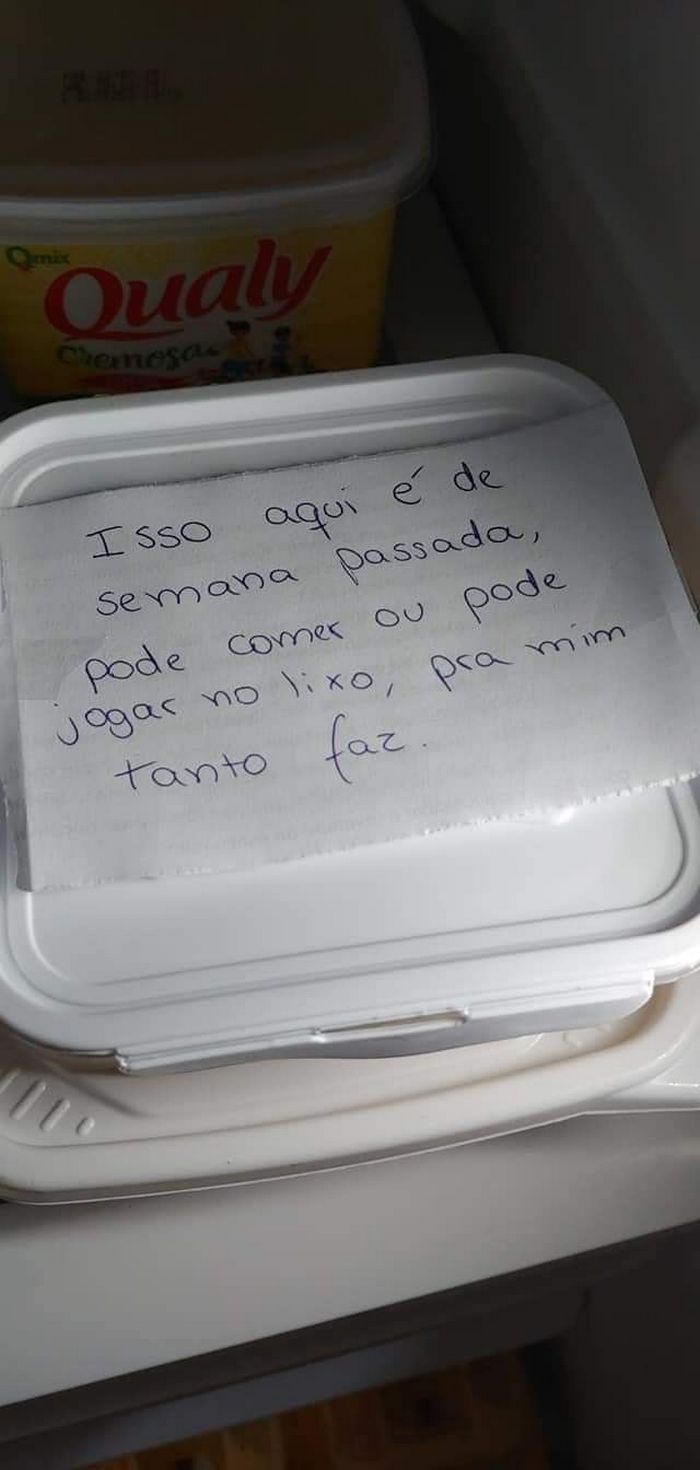 Qmix
Qualy
Cremosa
Isso aqui é de
semana passada,
pode comer ou pode
jogar no lixo, pra mim
tanto faz.